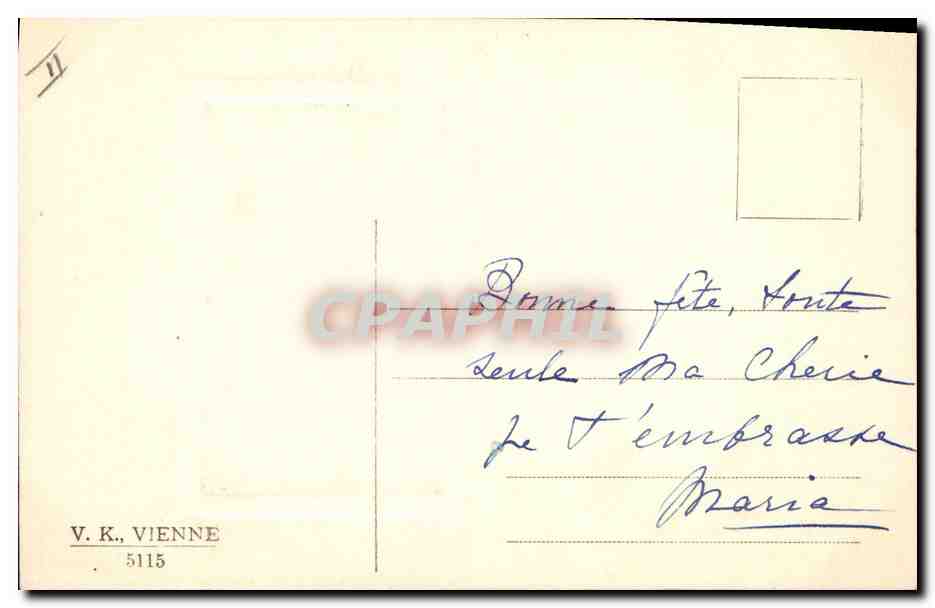 11
Bonne fête, toute
seule Ma Cherie
je t'embrasse
Maria
CPAPHIL
V. K., VIENNE
5115